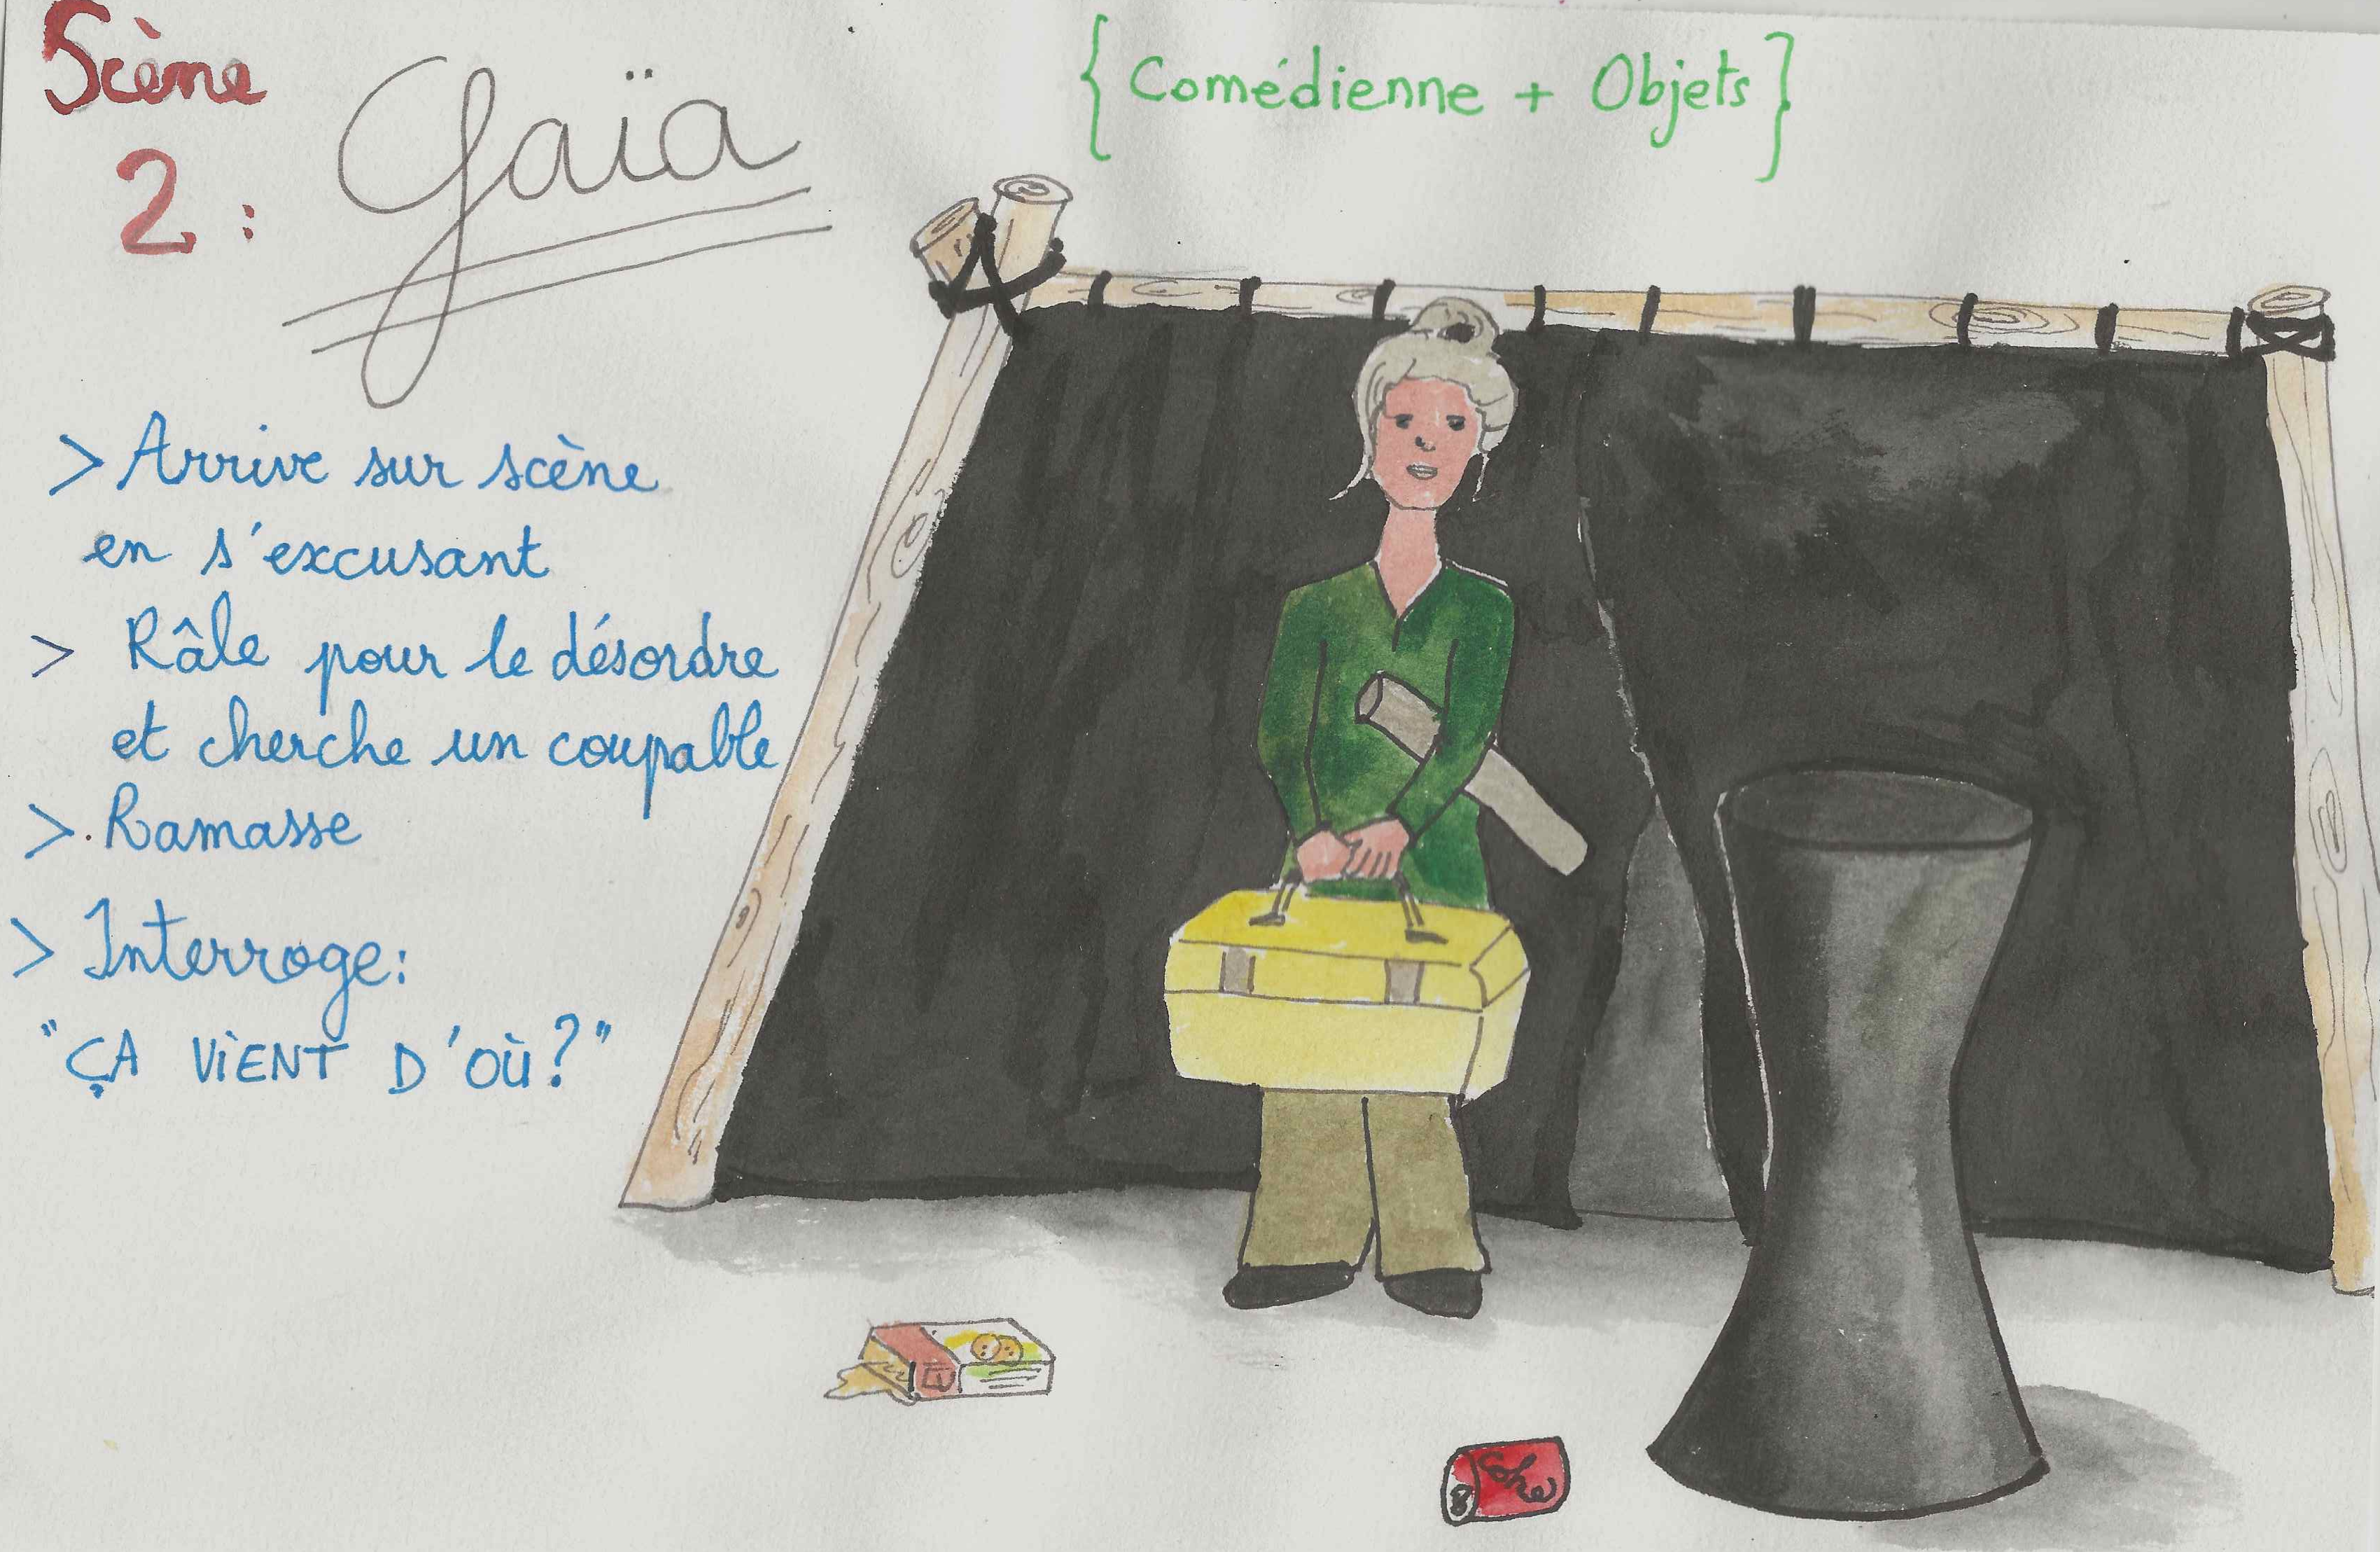 Scène
2 :
Gaïa
{ Comédienne + Objets }
> Arrive sur scène
en s'excusant
> Râle pour le désordre
et cherche un coupable
> Ramasse
> Interroge :
"ÇA ViENT D'OÙ ?"